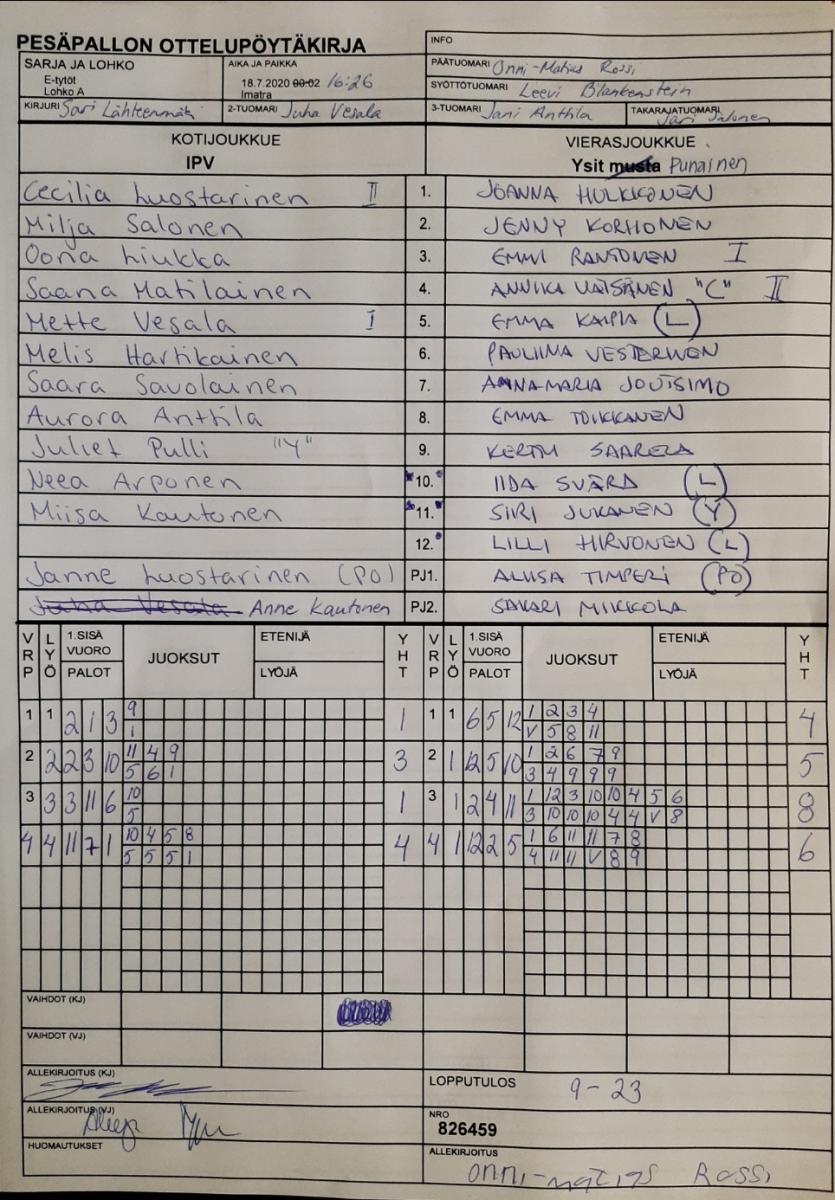 PESÄPALLON OTTELUPÖYTÄKIRJA
INFO
SARJA JA LOHKO
E-tytöt
Lohko A
AIKA JA PAIKKA
18.7.2020 00:02 16:26
Imatra
PÄÄTUOMARI Onni-Matias Rossi
SYÖTTÖTUOMARI Leevi Blankenstein
KIRJURI Sari Lähteenmäki
2-TUOMARI Juha Vesala
3-TUOMARI Jani Anttila
TAKARAJATUOMARI Jari Salonen
KOTIJOUKKUE
IPV
VIERASJOUKKUE
Ysit musta Punainen
Cecilia Luostarinen II 1. JOANNA HULKKONEN
Milja Salonen 2. JENNY KORHONEN
Oona Liukka 3. EMMI RANTONEN I
Saana Matilainen 4. ANNIKA VÄISÄNEN "C" II
Mette Vesala I 5. EMMA KAIPIA (L)
Melis Hartikainen 6. PAULIINA VESTERINEN
Saara Savolainen 7. ANNAMARIA JOUTSIMO
Aurora Anttila 8. EMMA TOIKKANEN
Juliet Pulli "Y" 9. KERTTU SAARELA
Neea Arponen 10. IIDA SVÄRD (L)
Miisa Kautonen 11. SIRI JUKANEN (Y)
12. LILLI HIRVONEN (L)
Janne Luostarinen (PO) PJ1. ALIISA TIMPERI (PO)
Juha Vesala Anne Kautonen PJ2. SAKARI MIIKKOLA
VRP LYÖ 1.SISÄ VUORO PALOT JUOKSUT ETENIJÄ LYÖJÄ YHT VRP LYÖ 1.SISÄ VUORO PALOT JUOKSUT ETENIJÄ LYÖJÄ YHT
1 1 2 1 3 9 1 1 1 6 5 12 1 2 3 4 4
1 V 5 8 11
2 2 2 3 10 11 4 9 3 2 1 12 5 10 1 2 6 7 9 5
5 6 1 3 4 9 9 9
3 3 3 11 6 10 1 3 1 2 4 11 1 12 3 10 10 4 5 6 8
5 3 10 10 10 4 4 V 8
4 4 11 7 1 10 4 5 8 4 4 1 12 2 5 1 6 11 11 7 8 6
5 5 5 1 4 11 11 V 8 9
VAIHDOT (KJ)
VAIHDOT (VJ)
ALLEKIRJOITUS (KJ)
LOPPUTULOS 9-23
ALLEKIRJOITUS (VJ)
NRO
826459
HUOMAUTUKSET
ALLEKIRJOITUS
Onni-Matias Rossi